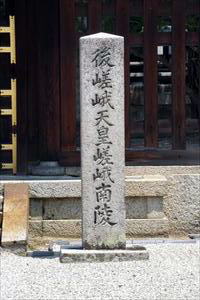 後嵯峨天皇嵯峨南陵